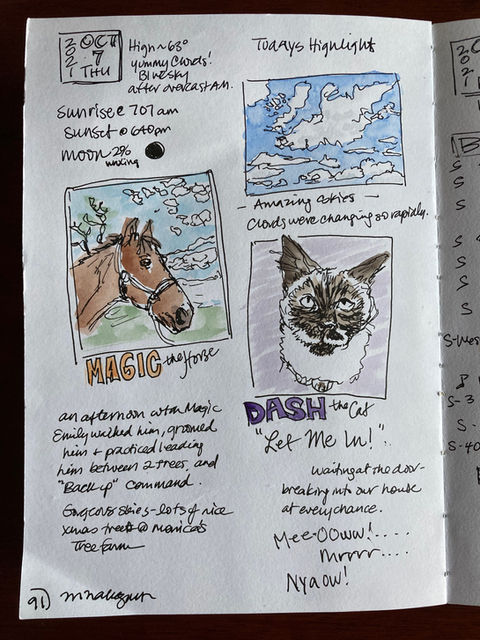 2021
OCT
7
THU
High ~ 68°
yummy Clouds!
Blue sky
after overcast AM.
sunrise @ 707 am
sunset @ 640pm
moon 2%
waxing
Todays Highlight
- Amazing skies -
Clouds were changing so rapidly.
MAGIC the Horse
an afternoon with Magic
Emily walked him, groomed
him + practiced leading
him between 2 trees, and
"Back up" command.
Gorgeous skies - lots of nice
xmas trees @ Monica's
Tree Farm
DASH the Cat
"Let Me In!"
waiting at the door-
breaking into our house
at every chance.
Mee-OOww!....
Mrrrr....
Nyaow!
91)
S
S
S
S
S
S
S
S-3
S-
S-40